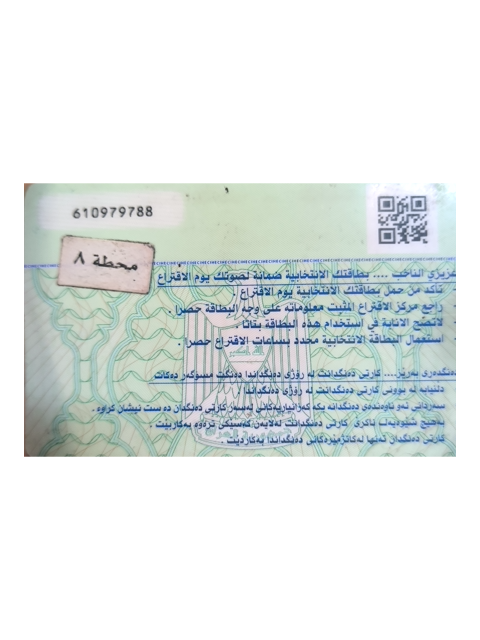 610979788
محطة ٨
عزيزي الناخب .... بطاقتك الانتخابية ضمانة لصوتك يوم الاقتراع
تأكد من حمل بطاقتك الانتخابية يوم الاقتراع
راجع مركز الاقتراع المثبت معلوماته على وجه البطاقة حصراً .
لاتصح الانابة في استخدام هذه البطاقة بتاتاً
استعمال البطاقة الانتخابية محدد بساعات الاقتراع حصراً .
دەنگدەری بەڕێز.... کارتی دەنگدانت لە ڕۆژی دەنگداندا دەنگت مسۆگەر دەکات
دڵنیابە لە بوونی کارتی دەنگدانت لە ڕۆژی دەنگداندا
سەردانی ئەو ناوەندەی دەنگدانە بکە کە زانیاریەکانی لەسەر کارتی دەنگدان دەست نیشان کراوە .
بەهیچ شێوەیەک ناکرێ کارتی دەنگدانت لەلایەن کەسێکی ترەوە بەکاربێت .
کارتی دەنگدان تەنها لە کاتژمێرەکانی دەنگداندا بەکاردێت .